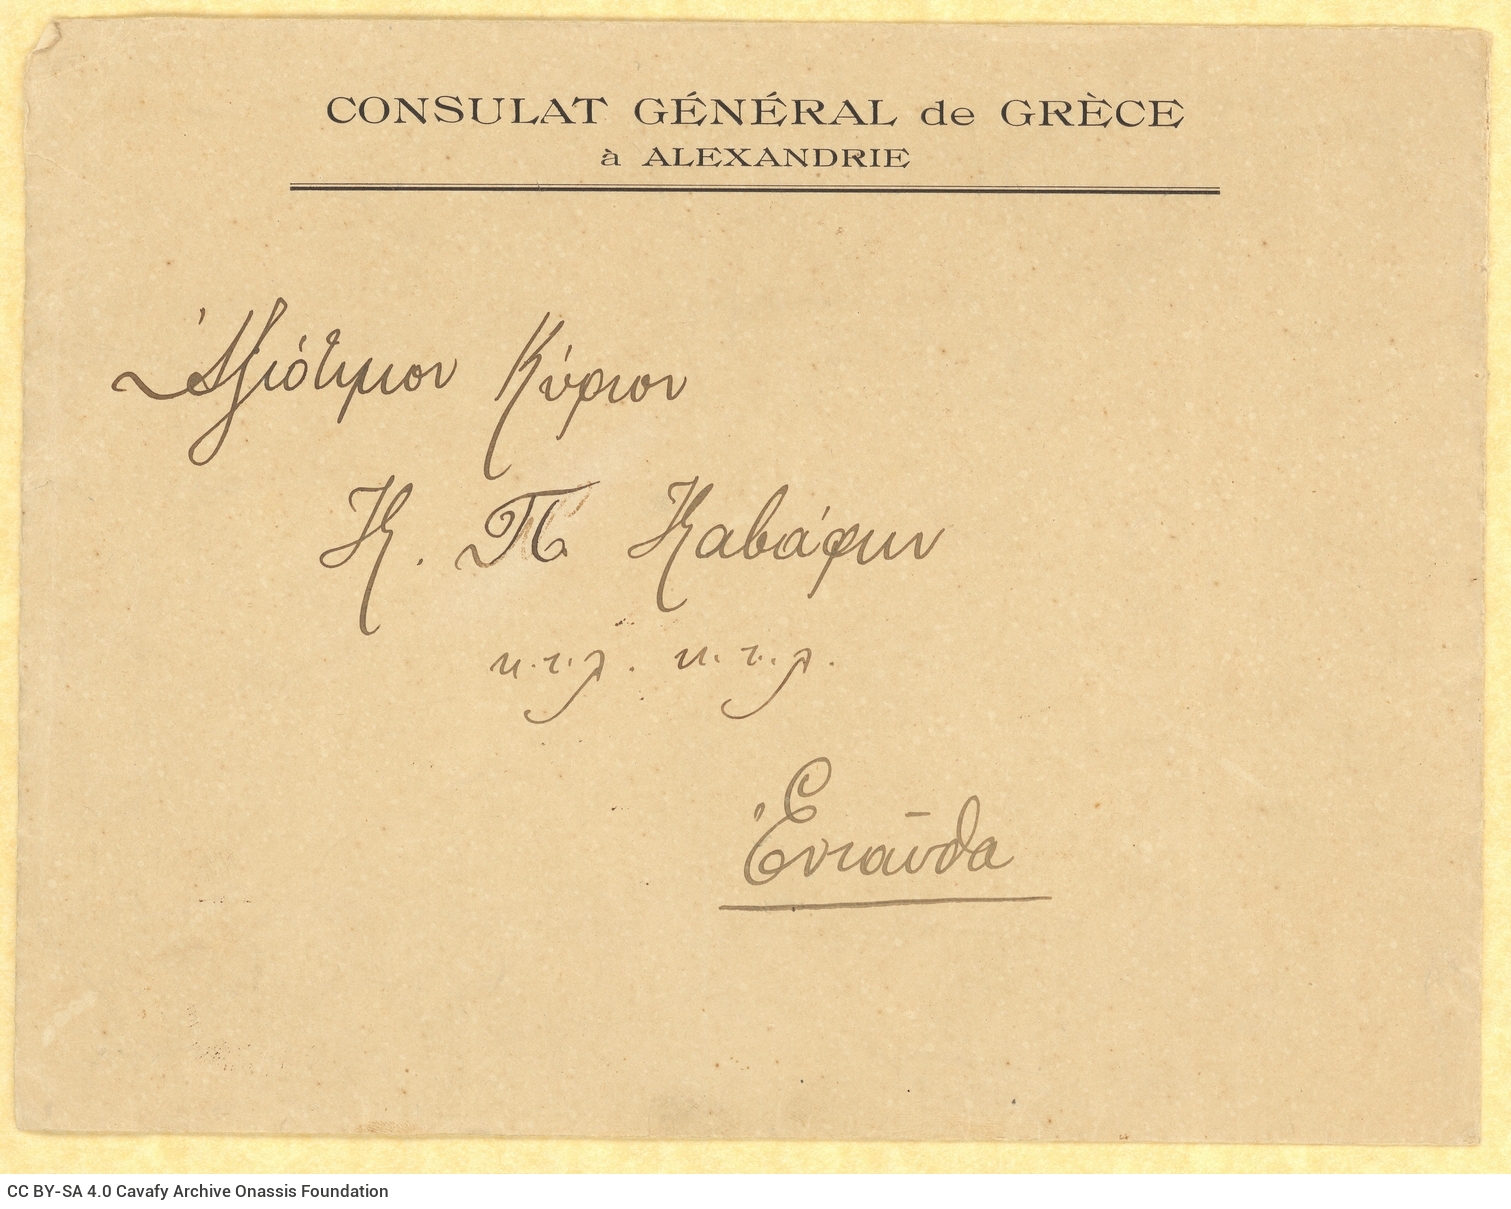 CONSULAT GÉNÉRAL de GRÈCE
à ALEXANDRIE
Ἀξιότιμον Κύριον
Κ. Π. Καβάφην
κ.τ.λ. κ.τ.λ.
Ἐνταῦθα
CC BY-SA 4.0 Cavafy Archive Onassis Foundation